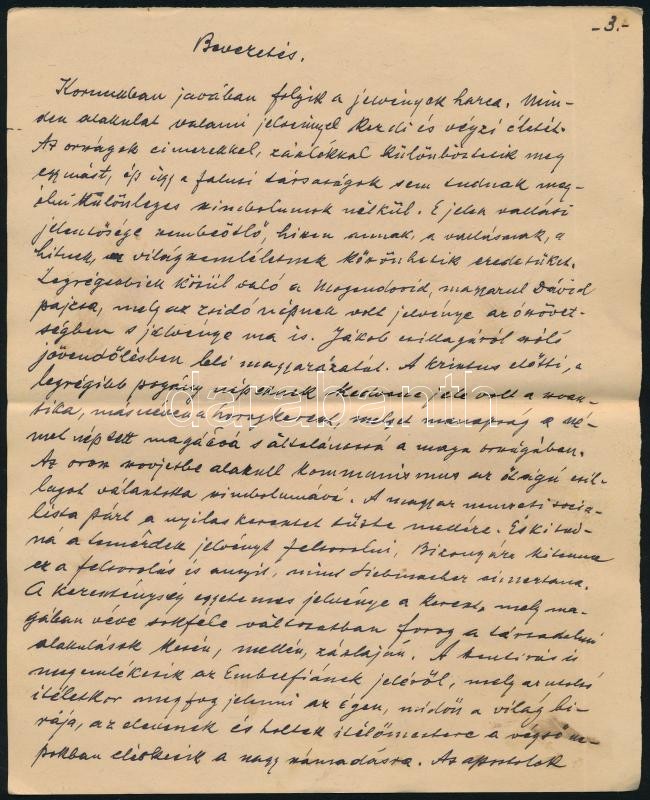 -3.-
Bevezetés.
Korunkban javában folyik a jelvények harca. Min-
den alakulat valami jelvénnyel kezdi és végzi életét.
Az országok címerekkel, zászlókkal különböztetik meg
egymást, ép úgy a falusi társaságok sem tudnak meg-
élni különleges szimbolumok nélkül. E jelek vallási
jelentősége szembeötlő, hiszen annak, a vallásnak, a
hitnek, világszemléletnek köszönhetik eredetüket.
Legrégebbiek közül való a Mogendovid, magyarul Dávid
pajzsa, mely az zsidó népnek volt jelvénye az ószövet-
ségben s jelvénye ma is. Jákob csillagáról szóló
jövendölésben leli magyarázatát. A krisztus előtti, a
legrégibb pogány népeknek kedvenc jele volt a svasz-
tika, más néven a horogkereszt, melyet manapság a né-
met nép tett magáévá s általánossá a maga országában.
Az orosz szovjetbe alakult kommunizmus az ötágú csil-
lagot választotta szimbolumává. A magyar nemzeti szocia-
lista párt a nyilaskeresztet tűzte mellére. És ki tud-
ná a temérdek jelvényt felsorolni. Bizonyára kitenne
ez a felsorolás is annyit, mint Siebmacher címertana.
A kereszténység egyetemes jelvénye a kereszt, mely ma-
gában véve sokféle változatban forog a társadalmi
alakulások kezén, mellén, zászlaján. A szentírás is
megemlékezik az Emberfiának jeléről, mely az utolsó
ítéletkor meg fog jelenni az égen, midőn a világ bí-
rája, az elevenek és holtak ítélőmestere a végső
elérkezik a nagy számadásra. Az apostolok
darabanth